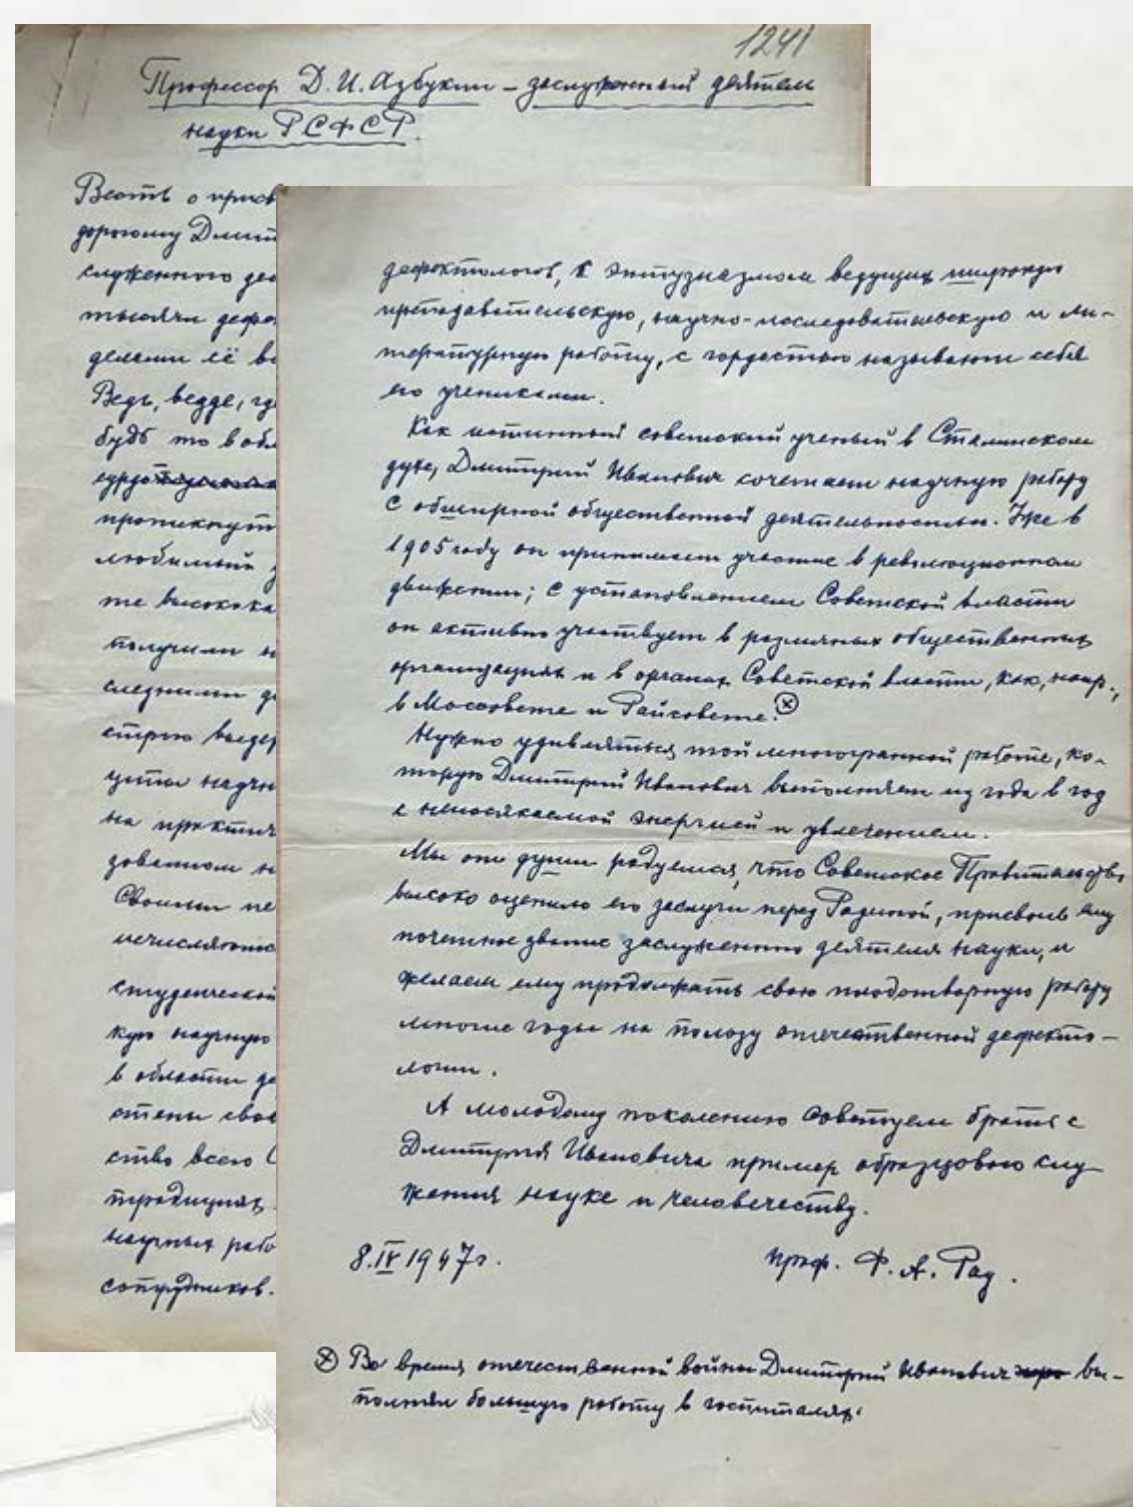 1241
Профессор Д. И. Азбукин – заслуженный деятель
науки РСФСР.
Весть о присв
дорогому Дмит
служенного дея
тысячи дефе
делами её во
Ведь, везде, гд
будь то в обл
сурдо
проникнут
любимый
те высокока
получили
следними
строю
на практич
зованном
Своими
исчисляютс
студенческой
кую научную
в области де
отены свое
ство всего С
традициях
научных рабо
сотрудников.
дефектологов, с энтузиазмом ведущих широкую
преподавательскую, научно-исследовательскую и ли-
тературную работу, с гордостью называют себя
его учениками.
Как истинный советский ученый в Сталинском
духе, Дмитрий Иванович сочетает научную работу
с обширной общественной деятельностью. Уже в
1905 году он принимает участие в революционном
движении; с установлением Советской власти
он активно участвует в различных общественных
организациях и в органах Советской власти, как, напр.,
в Моссовете и Райсовете. ⊗
Нужно удивляться той многогранной работе, ко-
торую Дмитрий Иванович выполняет из года в год
с неиссякаемой энергией и увлечением.
Мы от души радуемся, что Советское Правительство
высоко оценило его заслуги перед Родиной, присвоив ему
почетное звание заслуженного деятеля науки, и
желаем ему продолжать свою плодотворную работу
многие годы на пользу отечественной дефекто-
логии.
А молодому поколению советуем брать с
Дмитрия Ивановича пример образцового слу-
жения науке и человечеству.
8.IV 1947г.
проф. Ф. А. Рау.
⊗ Во время отечественной войны Дмитрий Иванович вы-
полнял большую работу в госпиталях.